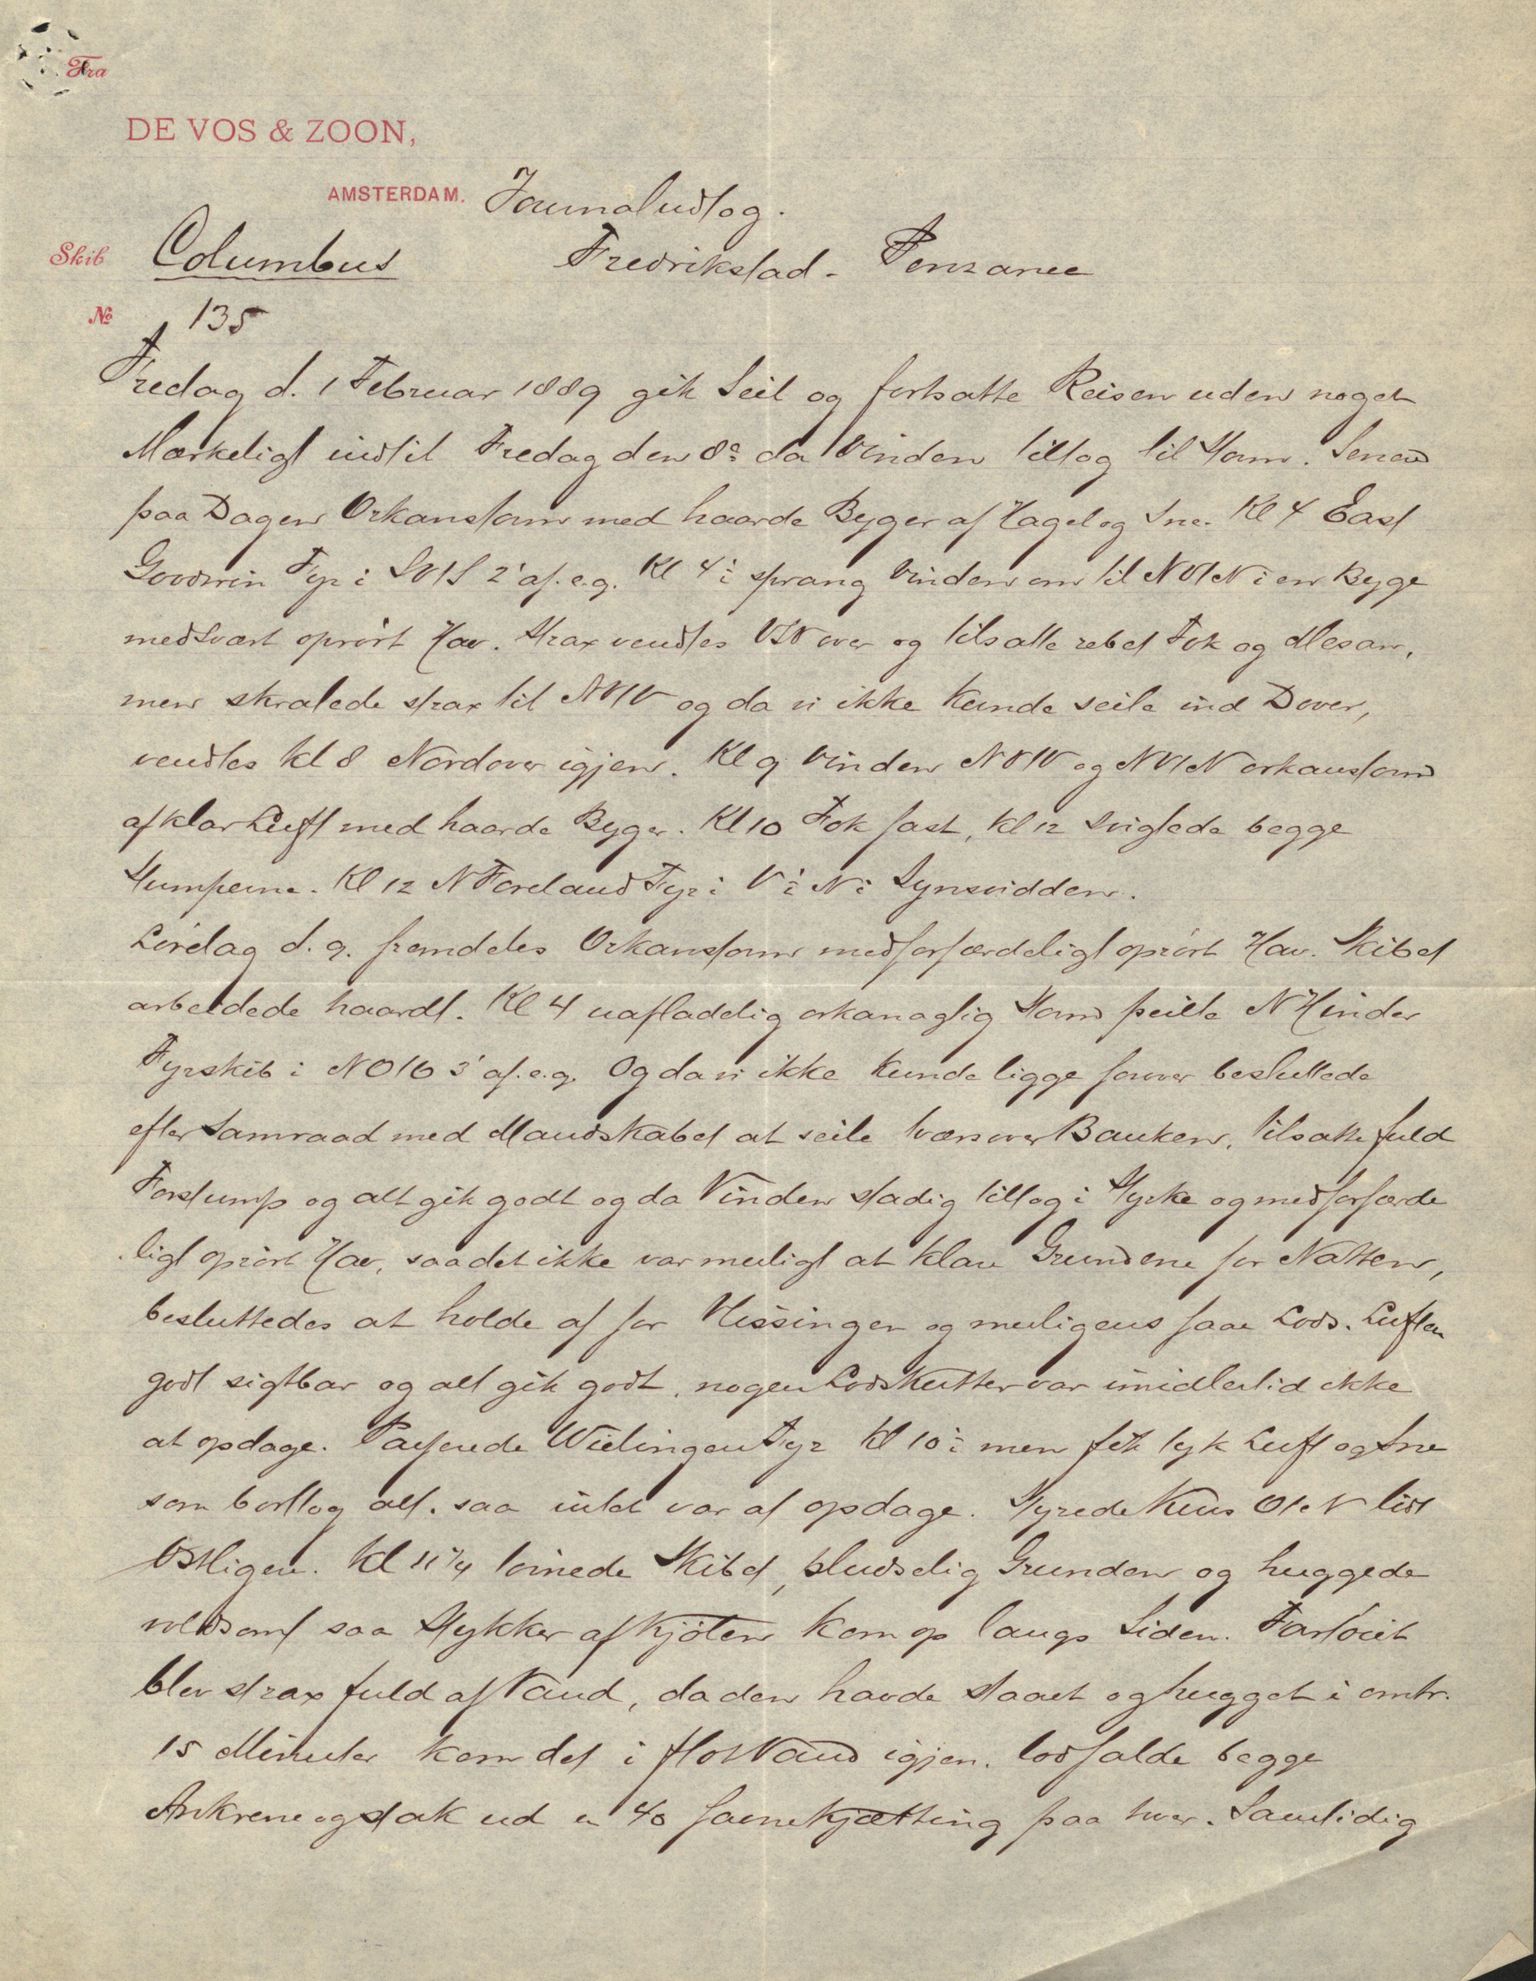 Fra
DE VOS & ZOON,
AMSTERDAM. Journaludtog.
Skib Columbus Fredrikstad - Penzance
No 135
Fredag d. 1 Februar 1889 gik Seil og fortsatte Reisen uden noget
Mærkeligt indtil Fredag den 8de da Vinden tiltog til Storm. Senere
paa Dagen Orkanstorm med haarde Byger af Hagel og Sne. Kl 4 East
Goodwin Fyr i 2' af. e.g. Kl 4½ sprang Vinden om til NVtN i en Byge
med Svært oprørt Hav. Strax vendtes over og tilsatte rebet Fok og Mesan,
men skralede strax til og da vi ikke kunde seile ind Dover,
vendtes kl 8 Nordover igjen. Kl 9 Vinden og NVtN orkanstorm
af klar Luft med haarde Byger. Kl 10 Fok fast, kl 12 Svigtede begge
Stumperne. Kl 12 N Foreland Fyr i V½N i Synsvidden.
Lørdag d. 9. fremdeles Orkanstorm med forfærdeligt oprørt Hav. Skibet
arbeidede haardt. Kl 4 uafladelig orkanagtig Storm peilte N Hinder
Fyrskib i 3' af. e.g. Og da vi ikke kunde ligge over besluttede
efter Samraad med Mandskabet at seile tværsover Banken, tilsatte fuld
Forstump og alt gik godt og da Vinden stadig tiltog i Styrke og med forfærde
ligt oprørt Hav, saa det ikke var muligt at klare Grundene for Natten,
besluttedes at holde af for Vlissingen og muligens faae Lods. Luften
godt sigtbar og alt gik godt, nogen Lodskutter var imidlertid ikke
at opdage. Passerede Wielingen Fyr Kl 10½ men fik tyk Luft og Sne
som borttog alt. saa intet var at opdage. Styrede Kurs OtN lidt
Østligere. Kl 11¼ tørnede Skibet, pludselig Grunden og huggede
voldsomt saa Stykker af Kjølen kom op langs Siden. Fartøiet
blev strax fuld af Vand, da den havde staaet og hugget i omtr.
15 Minuter kom det i flot Vand igjen. lodfalde begge
Ankrene og stak ud en 40 favne kjætting paa hver. Samtidig